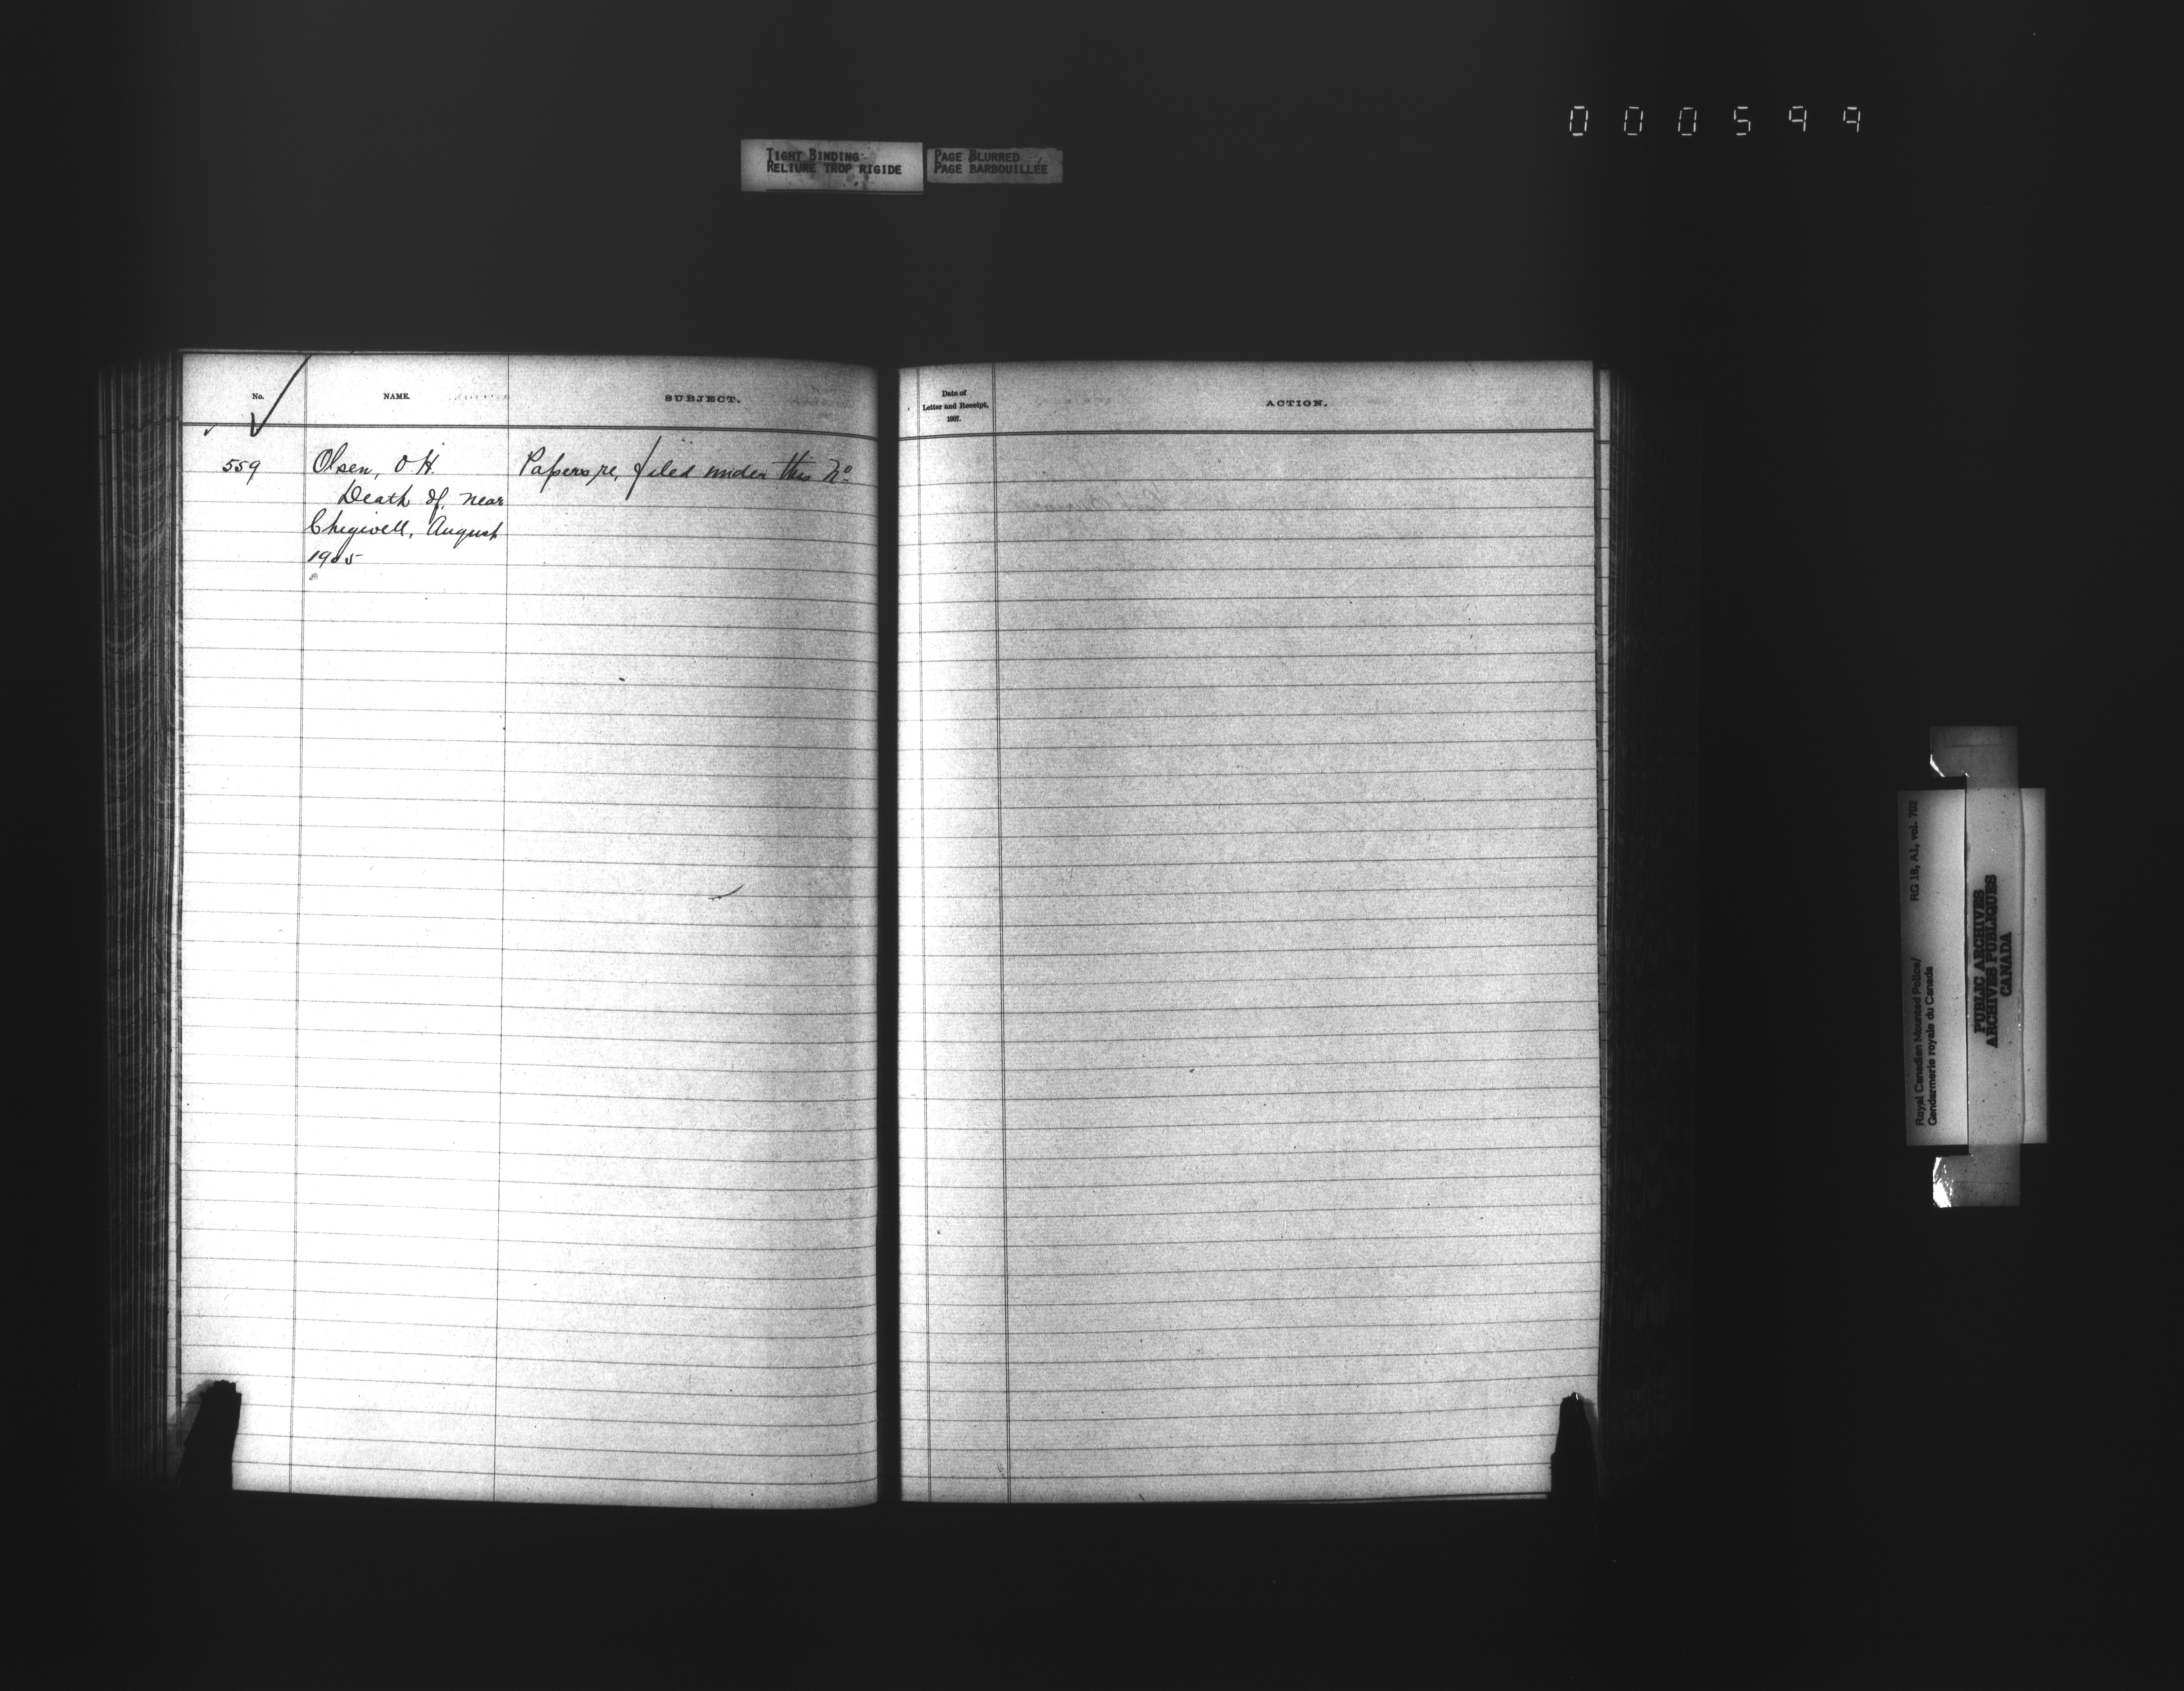 000599
TIGHT BINDING
RELIURE TROP RIGIDE
PAGE BLURRED
PAGE BARBOUILLÉE
No.
NAME.
SUBJECT.
Date of
Letter and Receipt,
1907.
ACTION.
559
Olsen, O.H.
Death of, near
Chigwell, August
1905
Papers re, filed under this No
RG 18, A1, vol. 702
Royal Canadian Mounted Police/
Gendarmerie royale du Canada
PUBLIC ARCHIVES
ARCHIVES PUBLIQUES
CANADA